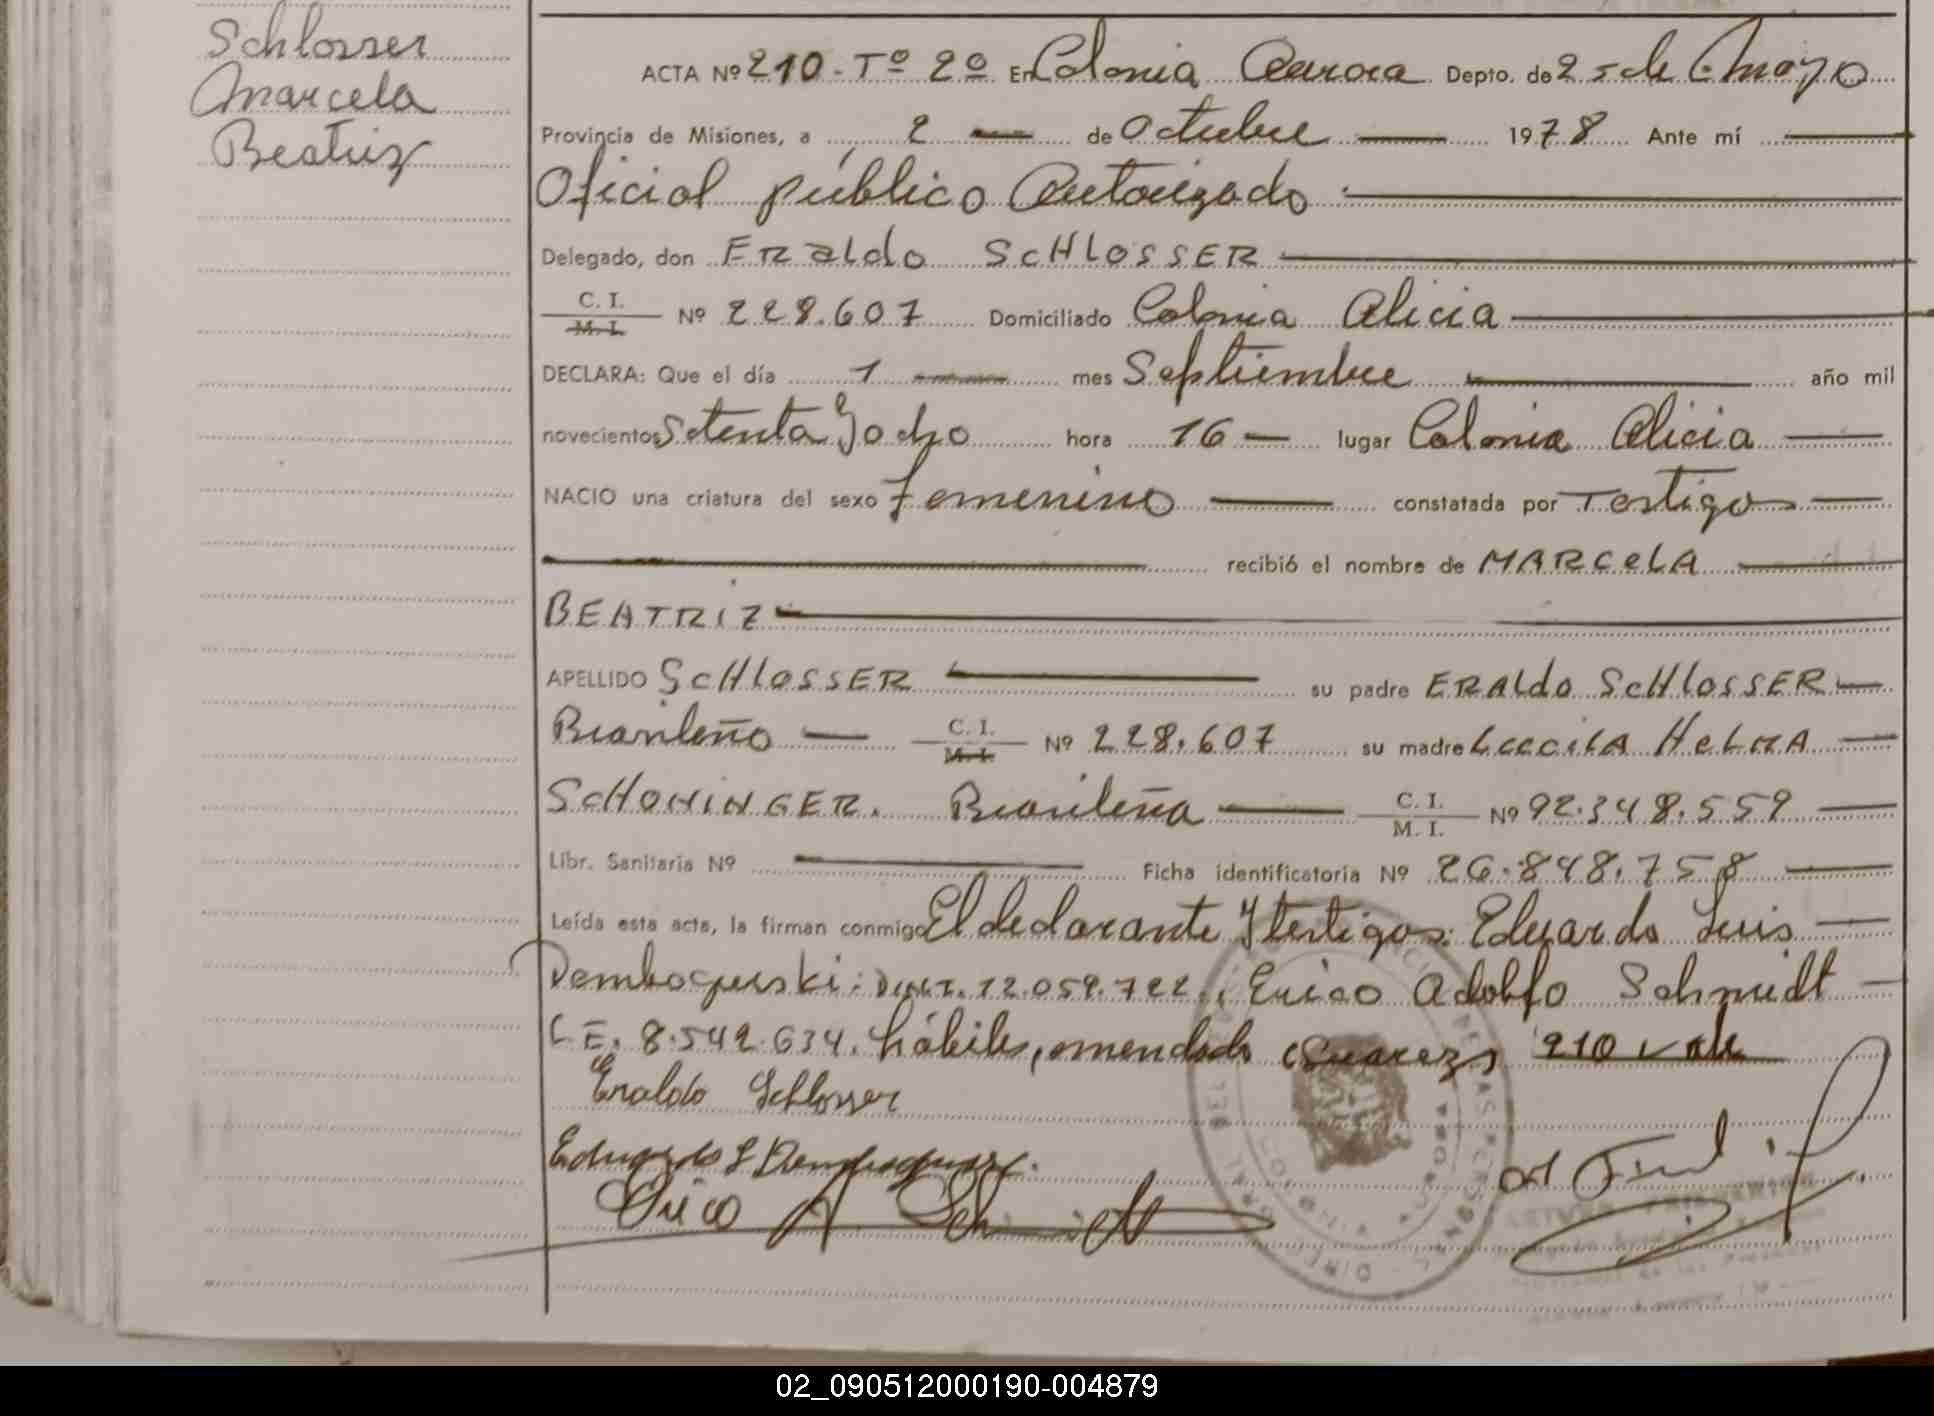 Schlosser
Marcela
Beatriz
ACTA Nº 210 - Tº 2º En Colonia Aurora Depto. de 25 de Mayo
Provincia de Misiones, a 2 de Octubre 1978 Ante mí
Oficial público Autorizado
Delegado, don ERaldo SCHlOSSER
C. I.
M. I. Nº 228.607 Domiciliado Colonia Alicia
DECLARA: Que el día 1 mes Septiembre año mil
novecientos Setenta y ocho hora 16 lugar Colonia Alicia
NACIO una criatura del sexo femenino constatada por Testigos
recibió el nombre de MARCELA
BEATRIZ
APELLIDO SCHlOSSER su padre ERAldo SCHlOSSER
Brasileño C. I.
M. I. Nº 228.607 su madre HELMA
SCHONINGER. Brasileña C. I.
M. I. Nº 92.348.559
Libr. Sanitaria Nº Ficha identificatoria Nº 26.848.758
Leída esta acta, la firman conmigo El declarante y testigos: Eduardo Luis
12.059.722, Erico Adolfo Schmidt
LE. 8.542.634. hábiles, 210 vale
Eraldo Schlosser
Erico A Schmidt
02_090512000190-004879